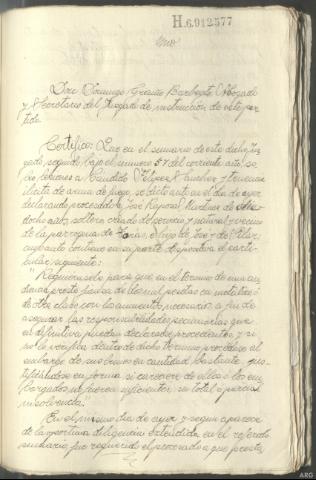 H.6.912577
Uno
Don Domingo Graiño Abogado
y Secretario del Juzgado de instrucción de este par-
tido.
Certifico: Que en el sumario de este dicho Juz-
gado, seguido bajo el número 57 del corriente año, so-
bre lesiones a Cándido y tenencia
ilícita de arma de fuego, se dictó auto en el día de ayer
declarando procesado a José Raposo Martínez de
docho años, soltero criado del servicio y natural y vecino
de la parroquia de hijo de José y de Pilar,
cuyo auto contiene en su parte dispositiva el parti-
cular siguiente:
"Requiérasele para que en el término de una au-
diencia preste fianza de dos mil pesetas en metálico o
de otra clase con los aumentos necesarios a fin de
asegurar las responsabilidades pecuniarias que
en definitiva puedan declararse procedentes, y si
no lo verifica dentro de dicho término procédase al
embargo de sus bienes en cantidad bastante jus-
tificándose en forma si careciere de ellos o los em-
bargados no fueren suficientes su total o parcial
insolvencia."
En el mismo día de ayer y según aparece
de la oportuna diligencia extendida en el referido
sumario, fue requerido el procesado a que preste
ARG